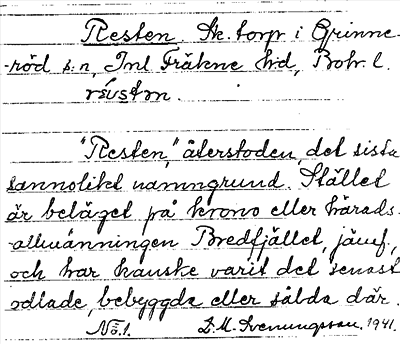 Resten. Sk. torp i Grinne-
röd s:n, Inl Fräkne hd, Boh. l.
"Resten," återstoden, det sista
sannolikt namngrund. Stället
är beläget på krono eller härads-
allmänningen Bredfjället, jämf.
och har kanske varit det senast
odlade, bebyggda eller sålda där.
No. 1. D. M. Svenungsson, 1941.